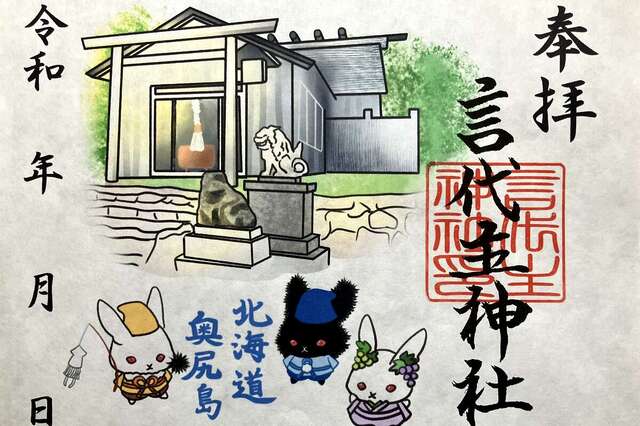 奉拝
言代主神社
言代主
神社之印
北海道
奥尻島
令和 年 月 日